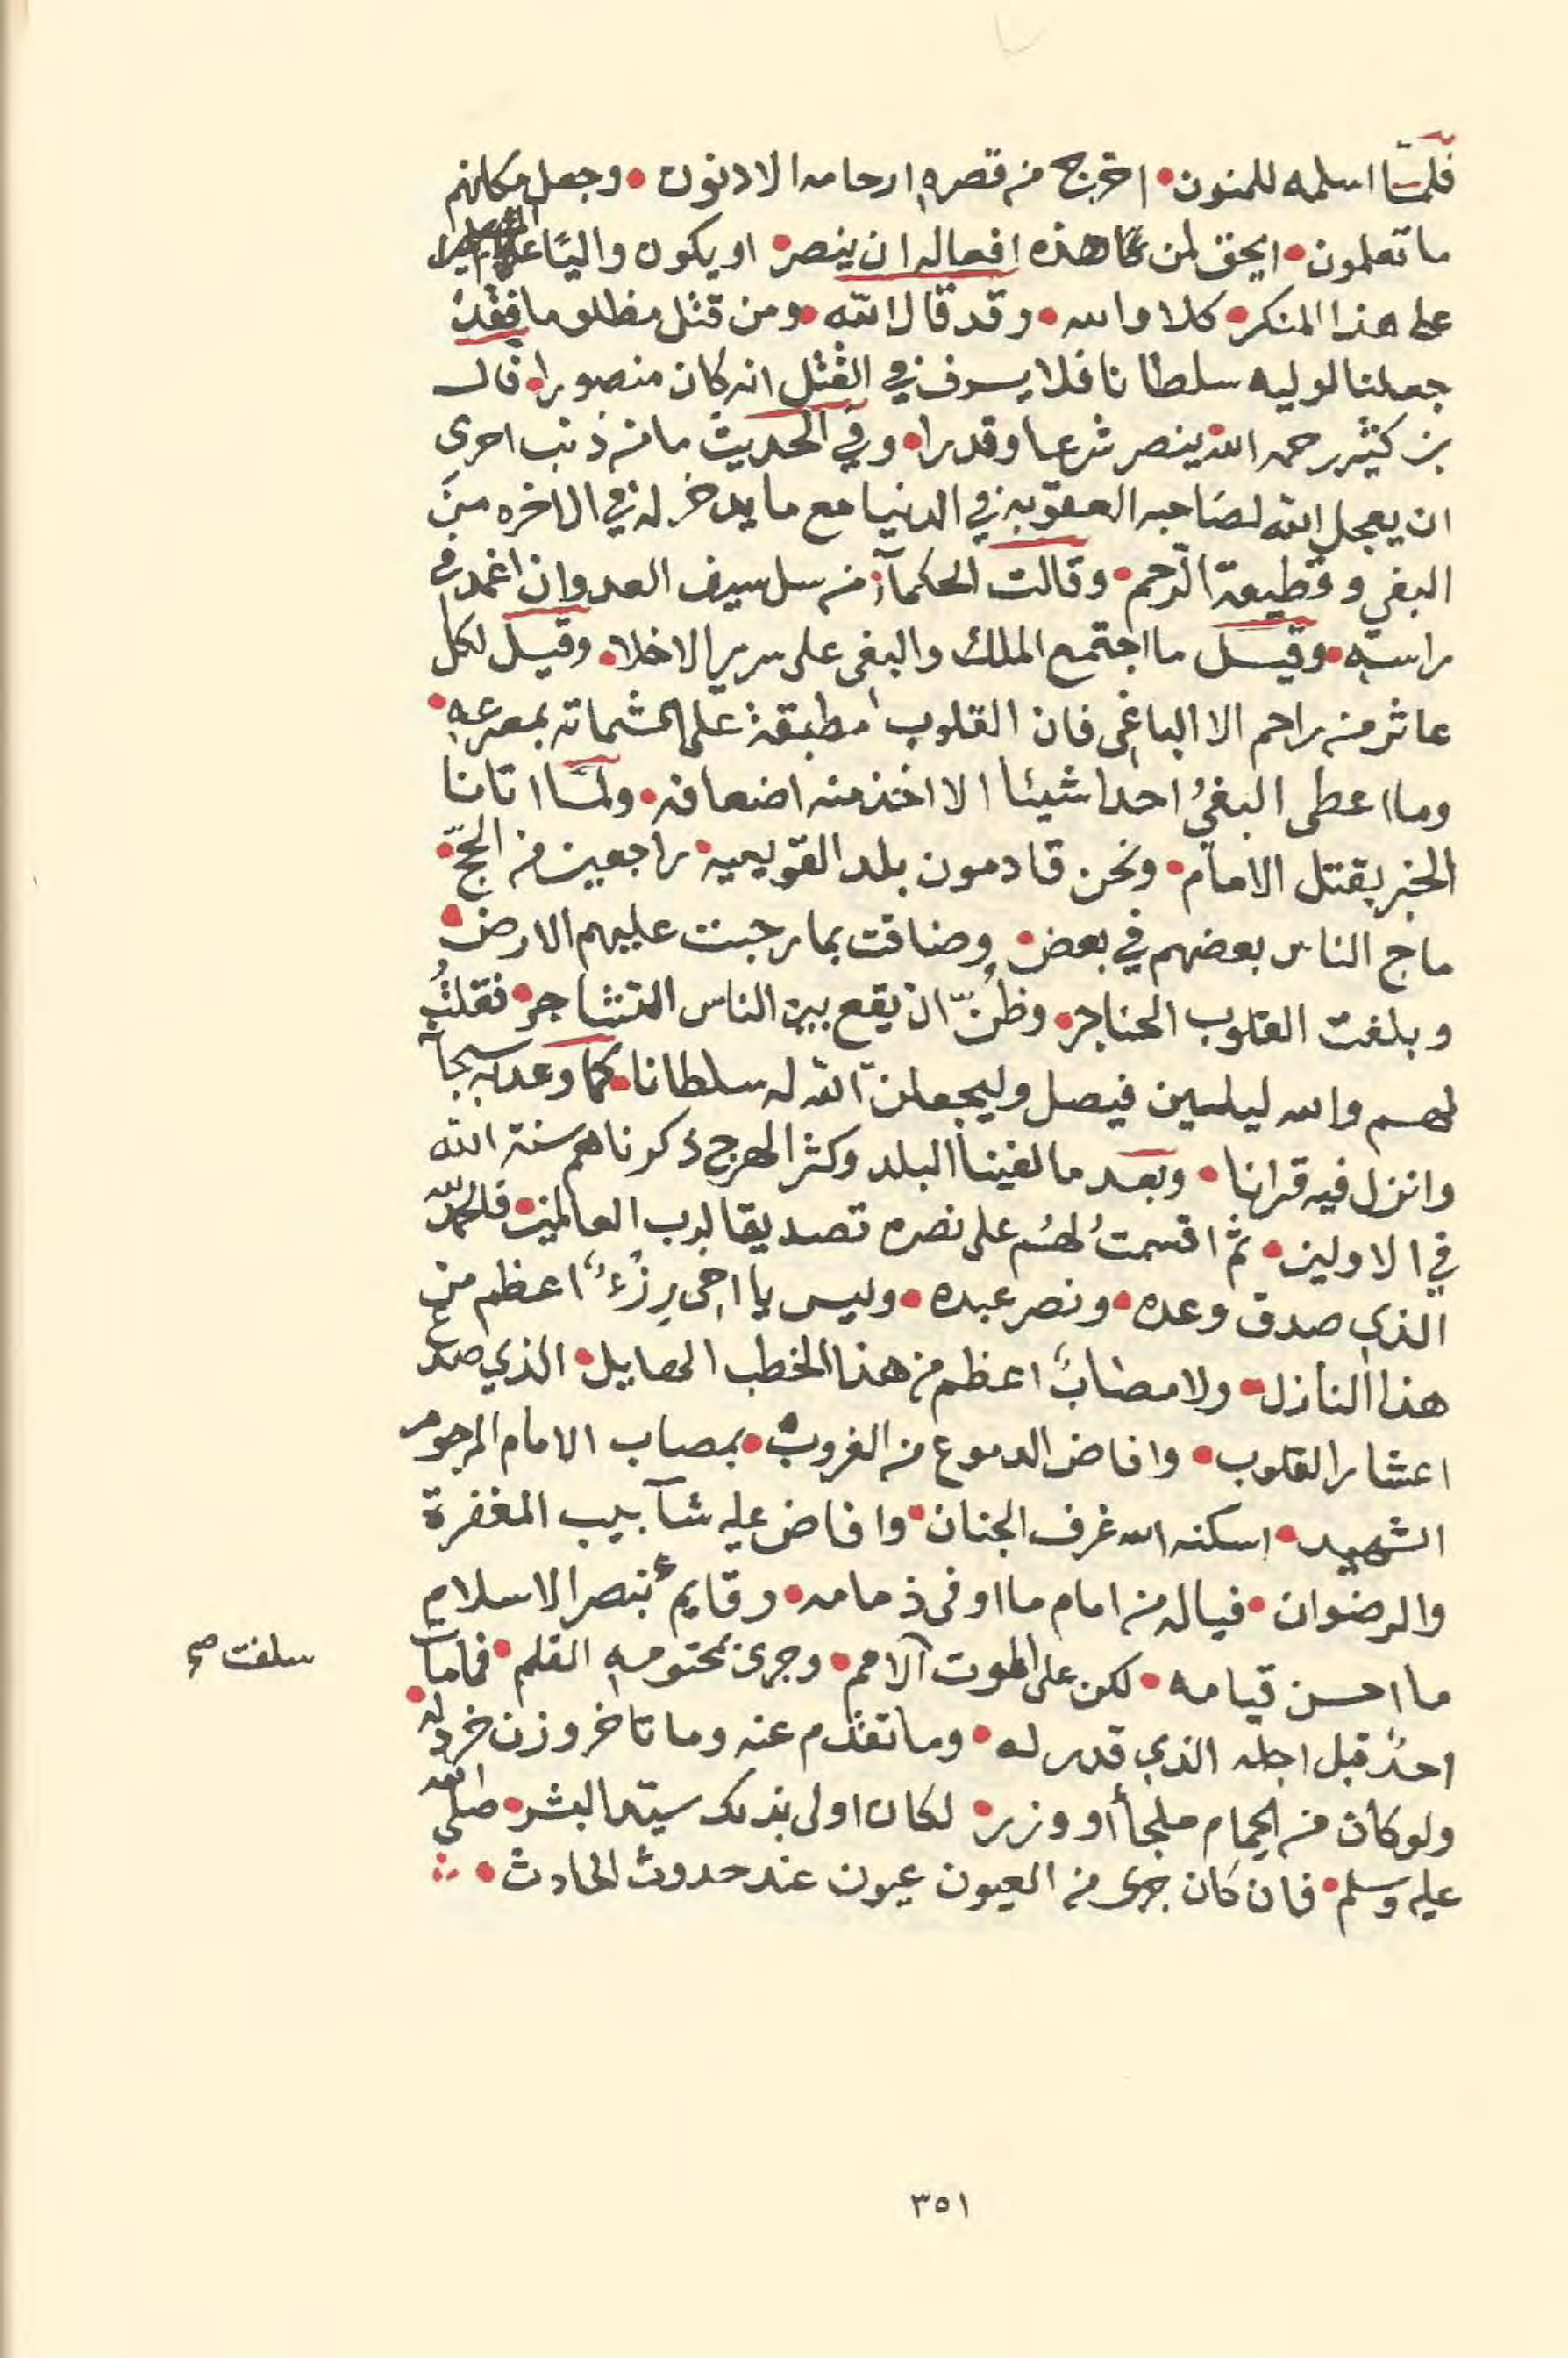 فلمّا اسلمه للمنون • اخرج من قصره ارحامه الادنون • وجعل مكانهم
ما تعلمون • ايحق لمن هذه افعاله ان ينصر • او يكون واليًا على
على هذا المنكر • كلا والله • وقد قال الله • ومن قتل مظلوما فقد
جعلنا لوليه سلطانا فلا يسرف في القتل انه كان منصورا • قال
بن كثير رحمه الله ينصر شرعا وقدرا • وفي الحديث ما من ذنب احرى
ان يعجل الله لصاحبه العقوبه في الدنيا مع ما يدخر له في الاخره من
البغي وقطيعة الرحم • وقالت الحكمآء من سل سيف العدوان اغمد في
راسه • وقيل ما اجتمع الملك والبغى على سرير الا خلا • وقيل لكل
عاثر من راحم الا الباغى فان القلوب مطبقة على الشماته بمصرعه •
وما اعطى البغيُ احدا شيئا الا اخذ منه اضعافه • ولمّا اتانا
الخبر بقتل الامام • ونحن قادمون بلد القويعيه • راجعين من الحجّ •
ماج الناس بعضهم في بعض • وضاقت بما رحبت عليهم الارض •
وبلغت القلوب الحناجر • وظُنّ ان يقع بين الناس التشاجر • فقلتُ
لهم والله ليلين فيصل وليجعلنّ الله له سلطانا • كما وعد به سبحآنه
وانزل فيه قرانا • وبعد ما لفينا البلد وكثر الهرج ذكرناهم سنة الله
في الاولين • ثم اقسمتُ لهُم على نصره تصديقا لرب العالمين • فلحمد لله
الذي صدق وعده • ونصر عبده • وليس يا اخى رِزْءٌ اعظم من
هذا النازل • ولا مصابٌ اعظم من هذا الخطب الهايل • الذي صدع
اعشار القلوب • وافاض الدموع من الغروب • بمصاب الامام المرحوم
الشهيد • اسكنه الله غرف الجنان • وافاض عليه شآبيب المغفرة
والرضوان • فياله من امام ما اوفى ذمامه • وقايم بنصر الاسلام
ما احسن قيامه • لكن على الموت الامم • وجرى بمحتومه القلم • فما مات
سلفت صح
احدٌ قبل اجله الذي قدر له • وما تقدم عنه وما تاخر وزن خردله •
ولو كان من الحمام ملجأ أو وزر • لكان اولى بذلك سيّد البشر • صلى الله
عليه وسلم • فان كان جرى من العيون عيون عند حدوث الحادث •
٣٥١